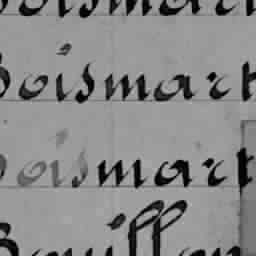 Boismart
Boismart
Boismart
Bouillon